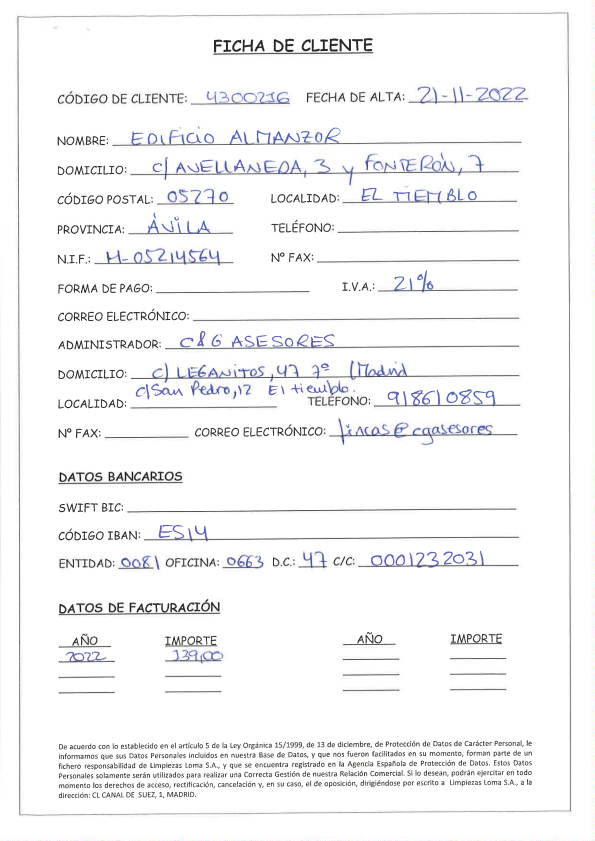 FICHA DE CLIENTE
CÓDIGO DE CLIENTE: 4300216 FECHA DE ALTA: 21-11-2022
NOMBRE: EDIFICIO ALMANZOR
DOMICILIO: C/ AVELLANEDA, 3 y FONTERÓN, 7
CÓDIGO POSTAL: 05270 LOCALIDAD: EL TIEMBLO
PROVINCIA: ÁVILA TELÉFONO:
N.I.F.: H-05214564 Nº FAX:
FORMA DE PAGO: I.V.A.: 21%
CORREO ELECTRÓNICO:
ADMINISTRADOR: C&G ASESORES
DOMICILIO: C/ LEGANITOS, 47 7º (Madrid
C/San Pedro, 12 El tiemblo.
LOCALIDAD: TELÉFONO: 918610859
Nº FAX: CORREO ELECTRÓNICO: fincas@cgasesores
DATOS BANCARIOS
SWIFT BIC:
CÓDIGO IBAN: ES14
ENTIDAD: 0081 OFICINA: 0663 D.C.: 47 C/C: 0001232031
DATOS DE FACTURACIÓN
AÑO IMPORTE AÑO IMPORTE
2022 139,00
De acuerdo con lo establecido en el artículo 5 de la Ley Orgánica 15/1999, de 13 de diciembre, de Protección de Datos de Carácter Personal, le
informamos que sus Datos Personales incluidos en nuestra Base de Datos, y que nos fueron facilitados en su momento, forman parte de un
fichero responsabilidad de Limpiezas Loma S.A., y que se encuentra registrado en la Agencia Española de Protección de Datos. Estos Datos
Personales solamente serán utilizados para realizar una Correcta Gestión de nuestra Relación Comercial. Si lo desean, podrán ejercitar en todo
momento los derechos de acceso, rectificación, cancelación y, en su caso, el de oposición, dirigiéndose por escrito a Limpiezas Loma S.A., a la
dirección: CL CANAL DE SUEZ, 1, MADRID.